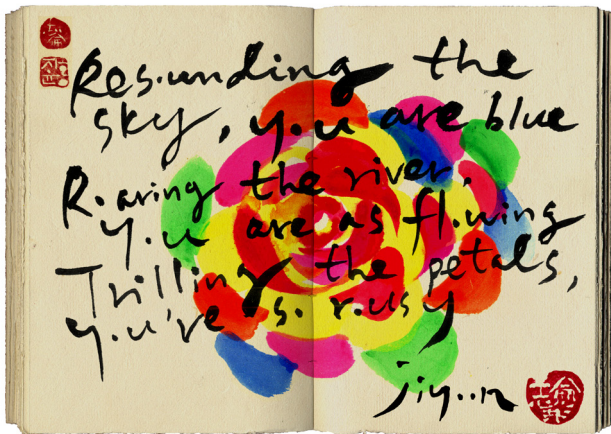 Res.unding the
sky, y.u are blue
R.aring the river,
y.u are as fl.wing
Trilling the petals,
y.u're s. r.usy
jiy..n